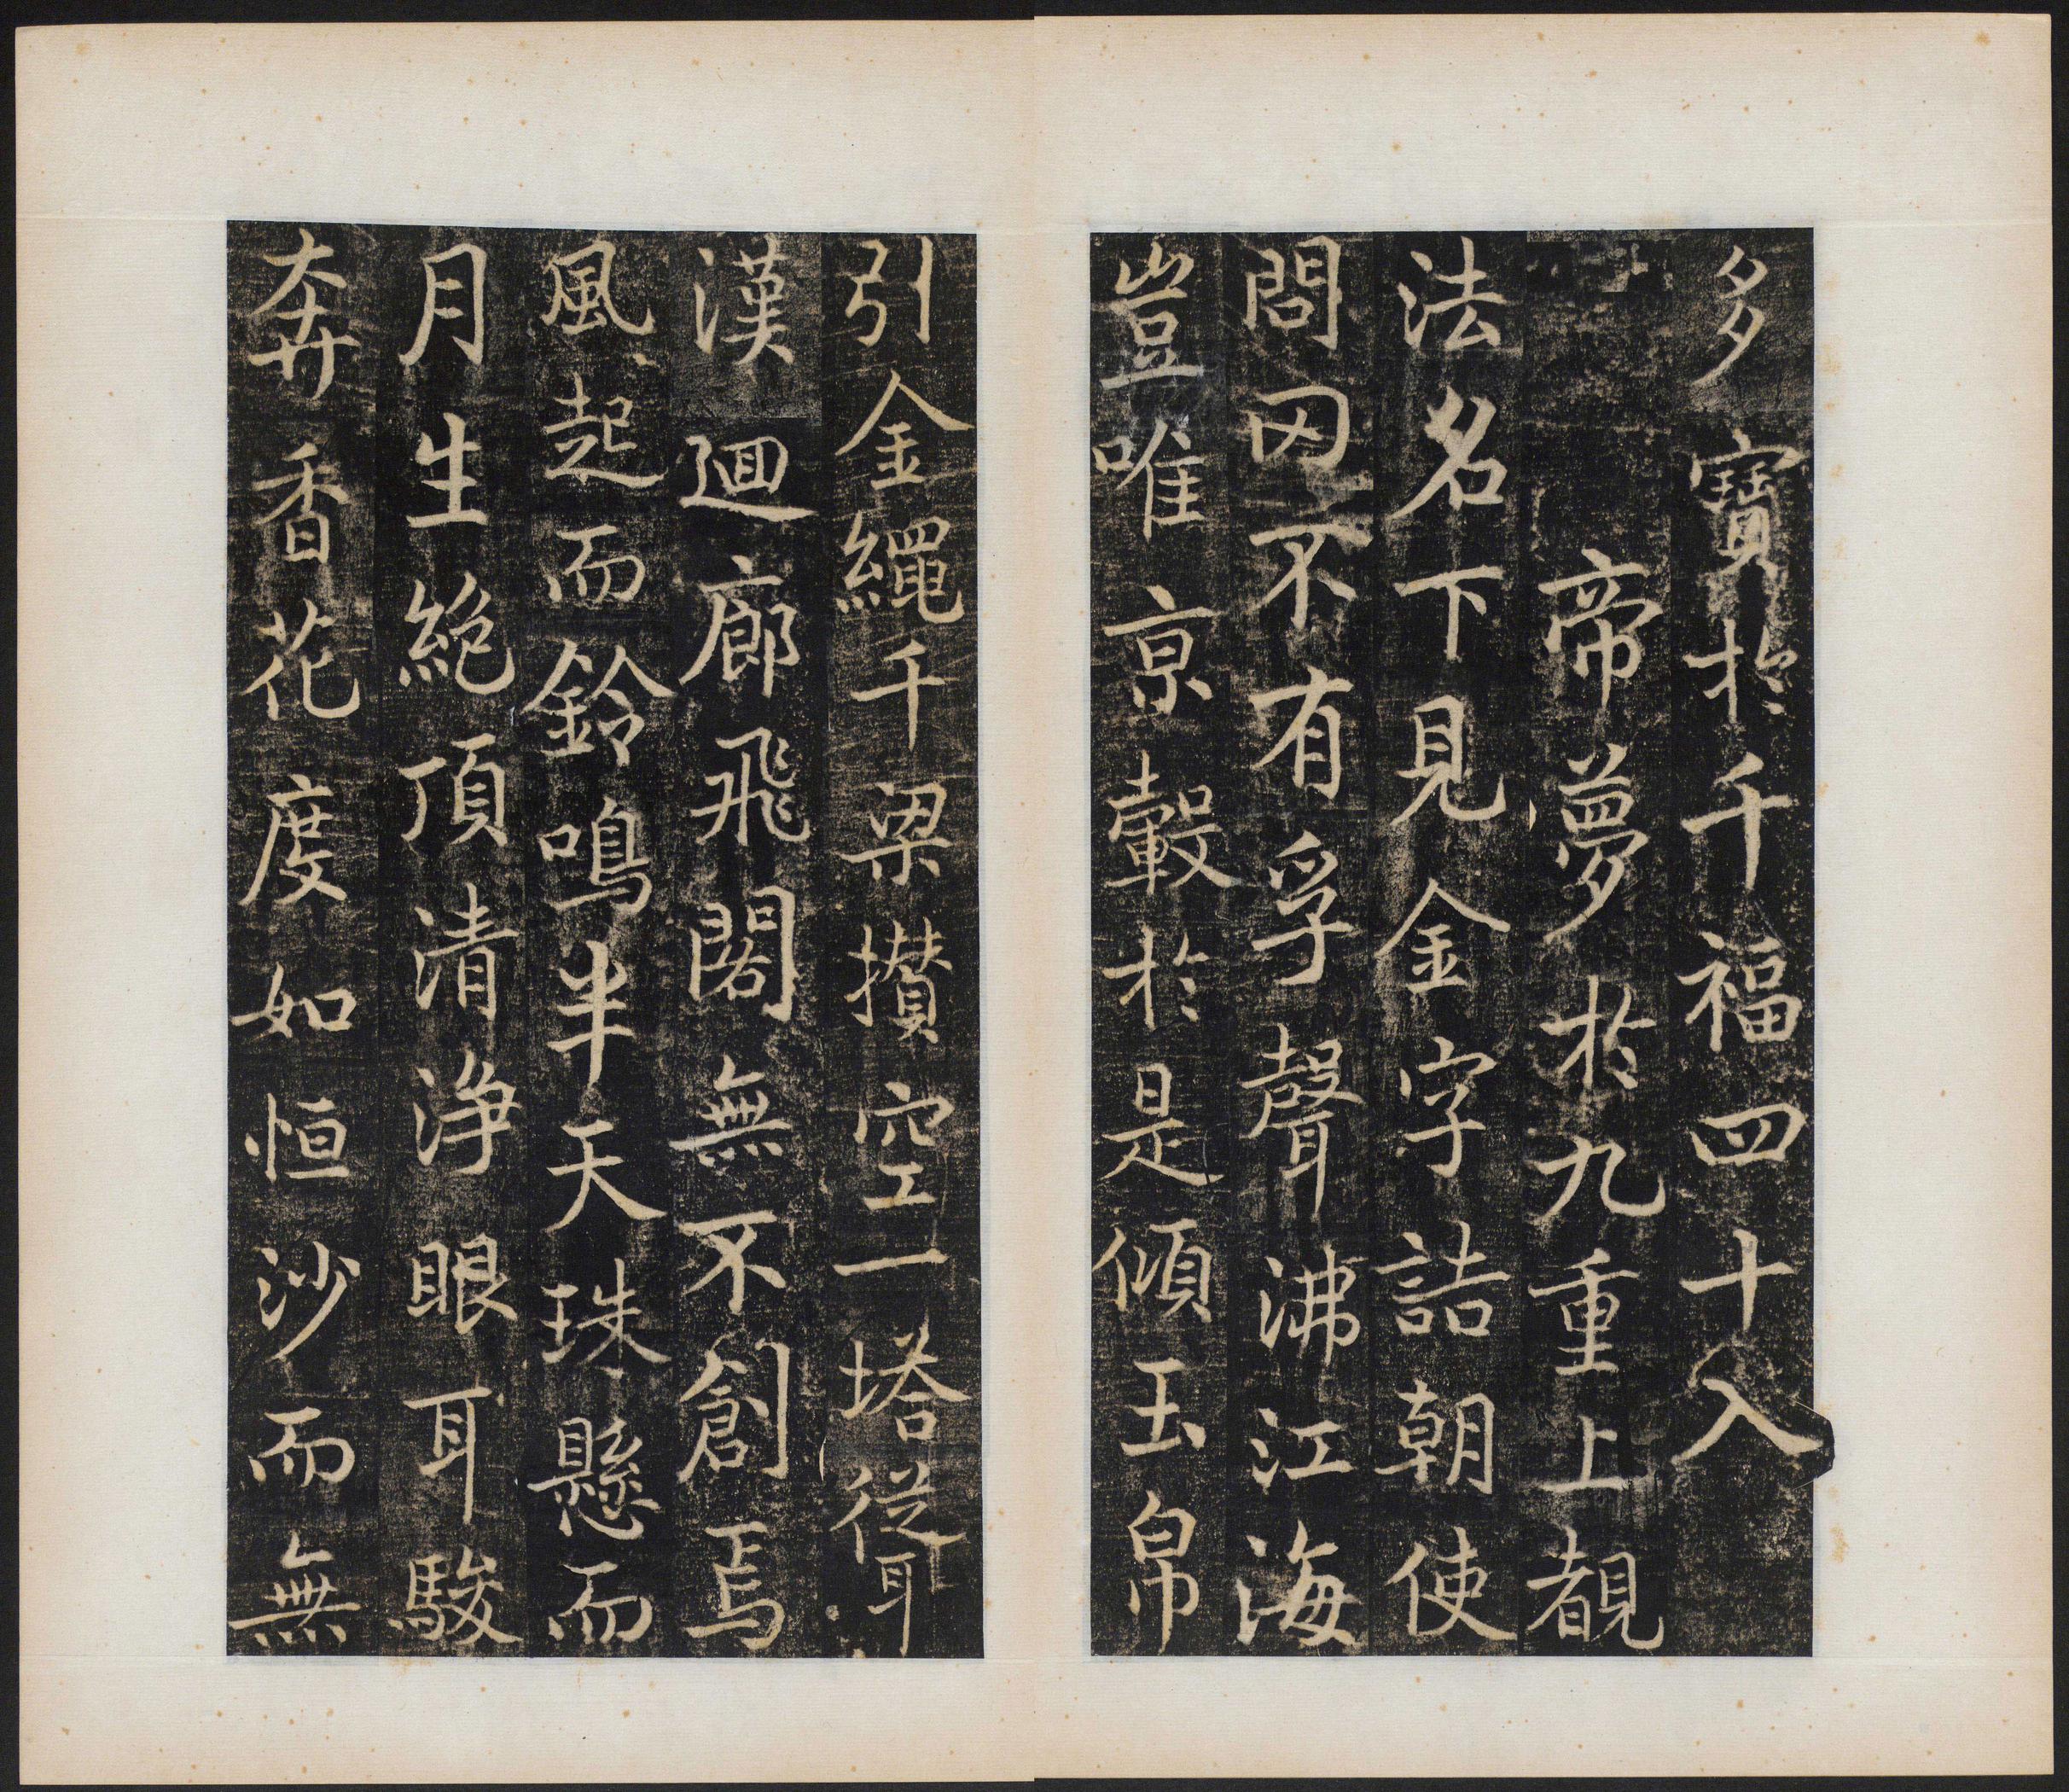 多寶於千福四十入
帝夢於九重上覩
法名下見金字詰朝使
問罔不有孚聲沸江海
豈唯京轂於是傾玉帛
引金繩千梁攅空一塔從耳
漢迴廊飛閣無不創焉
風起而鈴鳴半天珠懸而
月生絶頂清淨眼耳駿
奔香花度如恒沙而無